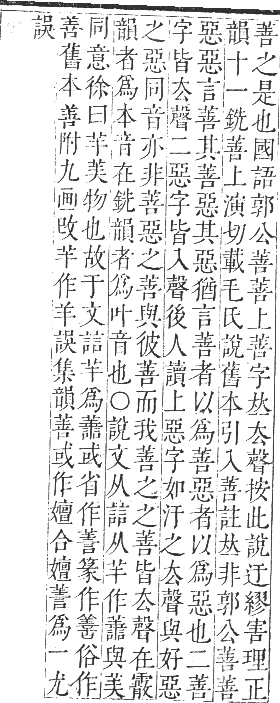 善之是也國語郭公善善上善字𠀤去聲按此說迂繆害理正
韻十一銑善上演切載毛氏說舊本引入善註𠀤非郭公善善
惡惡言善其善惡其惡猶言善者以為善惡者以為惡也二善
字皆去聲二惡字皆入聲後人讀上惡字如汙之去聲與好惡
之惡同音亦非善惡之善與彼善而我善之之善皆去聲在霰
韻者為本音在銑韻者為叶音也○說文从誩从羊作譱與美
同意徐曰羊美物也故于文誩羊為譱或省作善篆作善俗作
善舊本善附九画改羊作羊誤集韻善或作嬗合嬗善為一尤
誤